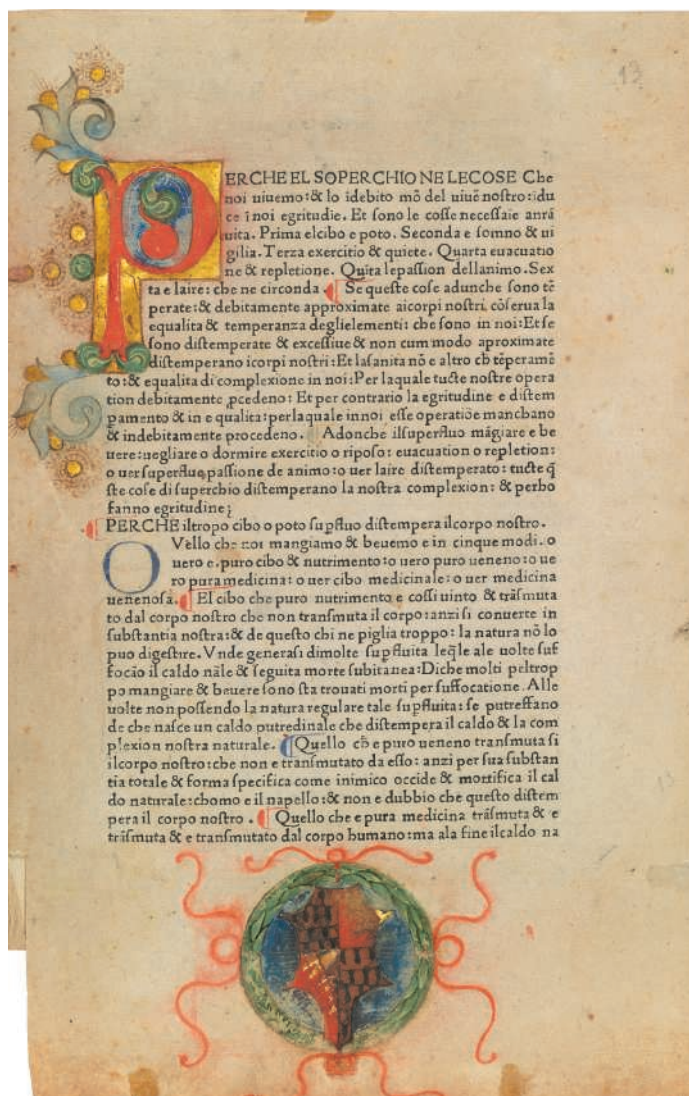 13
PERCHE EL SOPERCHIO NE LECOSE Che
noi uiuemo:& lo idebito mõ del uiuẽ nostro:idu
ce ĩ noi egritudie. Et ſono le coſſe neceſſaie anrã
uita. Prima elcibo e poto. Seconda e ſomno & ui
gilia. Terza exercitio & quiete. Quarta euacuatio
ne & repletione. Quita lepaſſion dellanimo. Sex
ta e laire: che ne circonda. ¶ Se queſte coſe adunche ſono tẽ
perate:& debitamente approximate aicorpi noſtri cõſerua la
equalita & temperanza deglielementi: che ſono in noi:Et ſe
ſono diſtemperate & exceſſiue & non cum modo aproximate
diſtemperano icorpi noſtri:Et laſanita nõ e altro cħ tẽperamẽ
to:& equalita di complexione in noi:Per laquale tucte noſtre opera
tion debitamente ꝓcedeno: Et per contrario la egritudine e diſtem
pamento & in e qualita:perlaquale in noi eſſe operatiõe manchano
& indebitamente procedeno. Adonche ilſuperfluo mãgiare e be
uere:uegliare o dormire exercitio o ripoſo: euacuation o repletion:
o uer ſuperflua paſſione de animo:o uer laire diſtemperato: tucte q̃
ſte coſe di ſuperchio diſtemperano la noſtra complexion: & perho
fanno egritudine;
¶ PERCHE iltropo cibo o poto ſupfluo diſtempera ilcorpo noſtro.
OVello che noi mangiamo & beuemo e in cinque modi. o
uero e puro cibo & nutrimento:o uero puro ueneno:o ue
ro pura medicina: o uer cibo medicinale: o uer medicina
uenenoſa. ¶ El cibo che puro nutrimento e coſſi uinto & trãſmuta
to dal corpo noſtro che non tranſmuta il corpo:anzi ſi conuerte in
ſubſtantia noſtra:& de queſto chi ne piglia troppo: la natura nõ lo
puo digeſtire. Vnde generaſi dimolte ſupfluita leq̃le ale uolte ſuf
focão il caldo nãle & ſeguita morte ſubitanea:Diche molti peltrop
po mangiare & beuere ſono ſta trouati morti per ſuffocatione. Alle
uolte non poſſendo la natura regulare tale ſupfluita: ſe putreffano
de che naſce un caldo putredinale che diſtempera il caldo & la com
plexion noſtra naturale. ¶ Quello cħ e puro ueneno tranſmuta ſi
ilcorpo noſtro:che non e tranſmutato da eſſo: anzi per ſua ſubſtan
tia totale & forma ſpecifica come inimico occide & mortifica il cal
do naturale:chomo e il napello:& non e dubbio che queſto diſtem
pera il corpo noſtro. ¶ Quello che e pura medicina trãſmuta & e
trãſmuta & e tranſmutato dal corpo humano:ma ala fine ilcaldo na